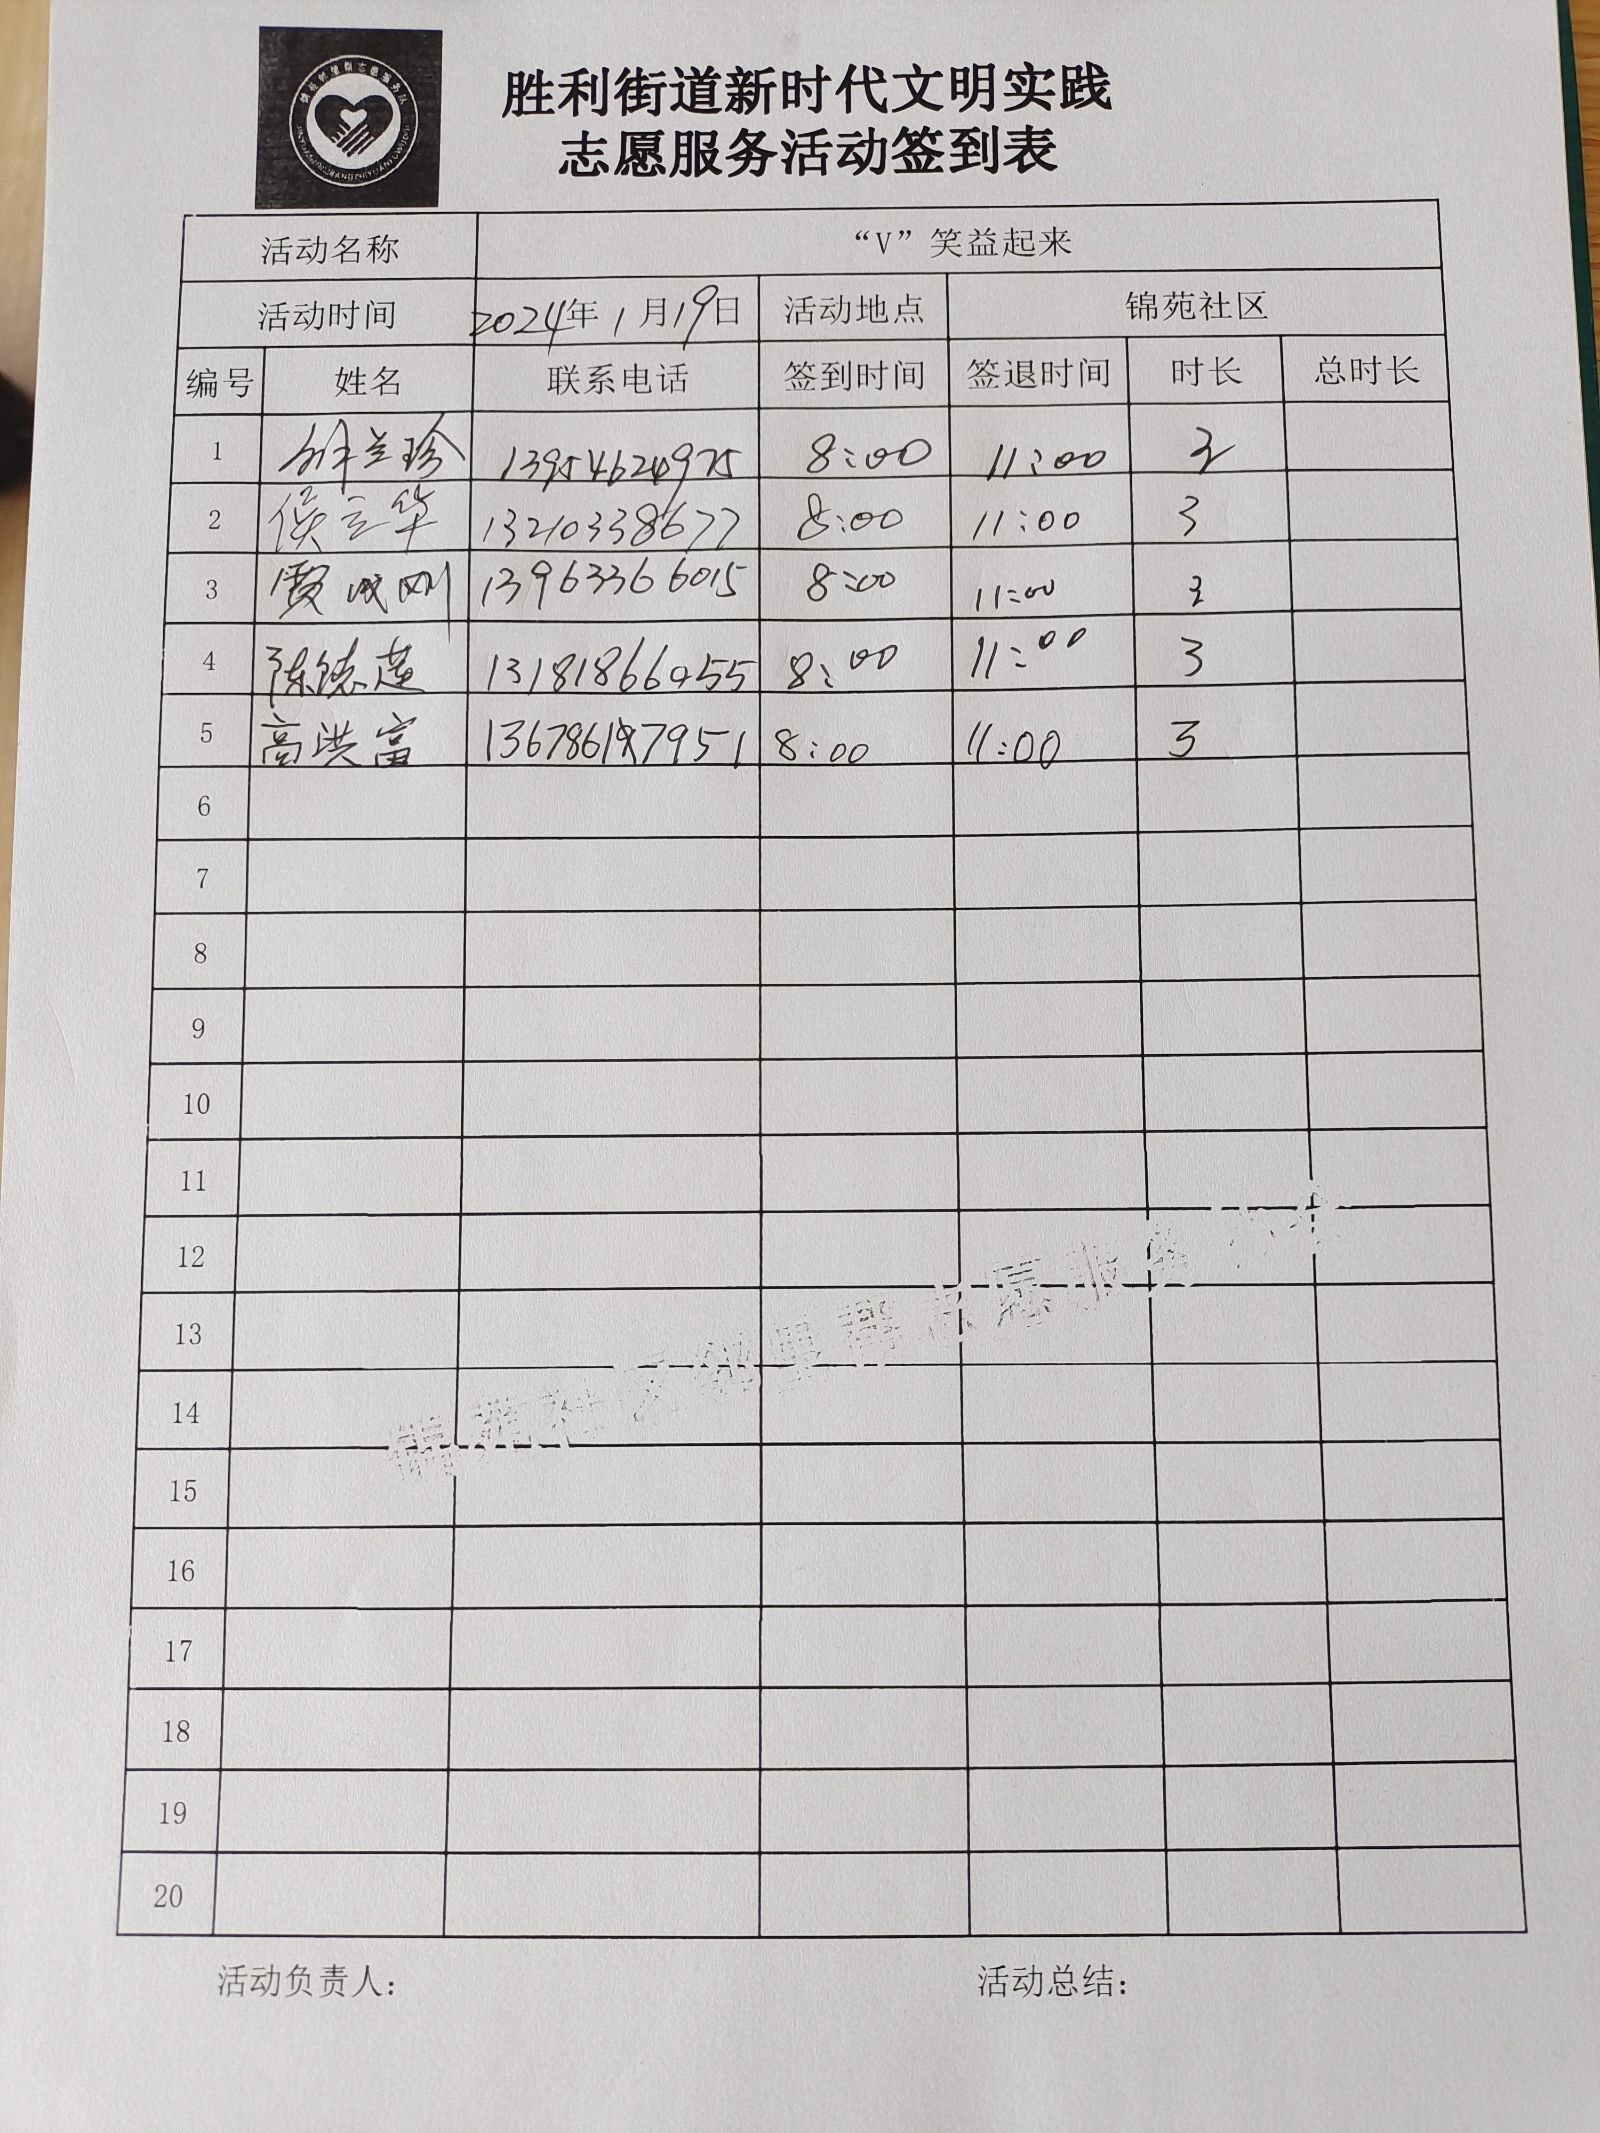 胜利街道新时代文明实践
志愿服务活动签到表
活动名称 “V”笑益起来
活动时间 2024年1月19日 活动地点 锦苑社区
编号 姓名 联系电话 签到时间 签退时间 时长 总时长
1 兰珍 13954624975 8:00 11:00 3
2 侯立华 13210338677 8:00 11:00 3
3 贾成刚 13963366015 8:00 11:00 3
4 陈德莲 13181866055 8:00 11:00 3
5 高洪富 8:00 11:00 3
6
7
8
9
10
11
12
13
14
15
16
17
18
19
20
活动负责人： 活动总结：